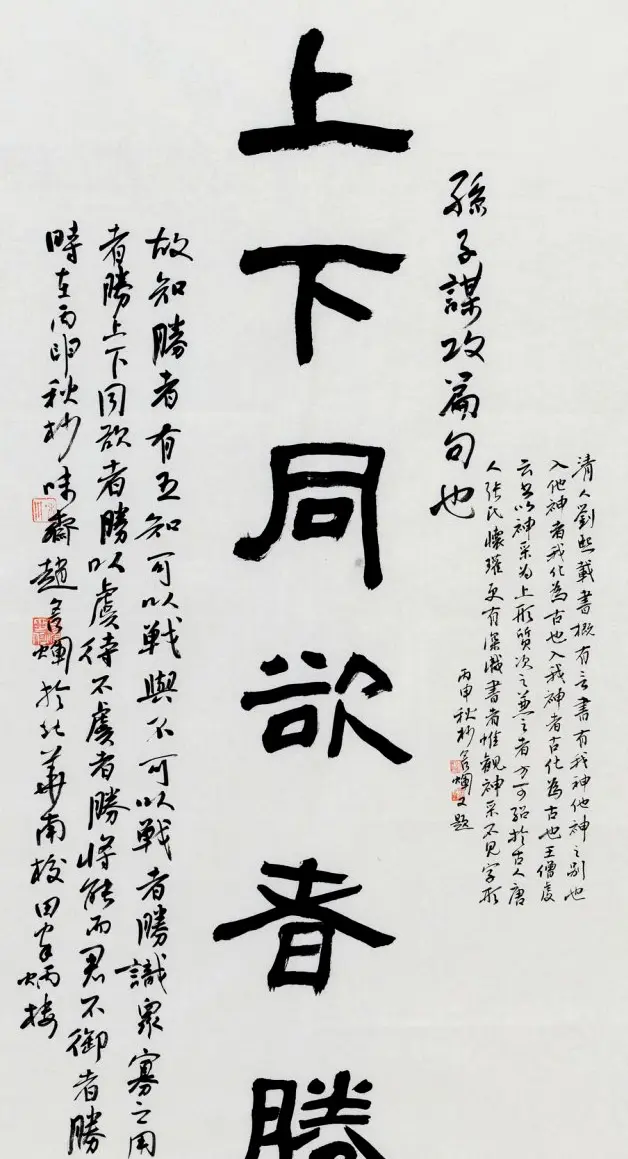 清人劉熙載書概有言書有我神他神之別也
入他神者我化為古也入我神者古化為古也王僧虔
云書以神采為上形質次之兼之者方可紹於古人唐
人張氏懷瓘更有深識書者惟觀神采不見字形
丙申秋杪又題
孫子謀攻篇句也
上下同欲者勝
故知勝者有五知可以戰與不可以戰者勝識眾寡之用
者勝上下同欲者勝以虞待不虞者勝將能而君不御者勝
時在丙申秋杪味齋趙於北華南校田家炳樓